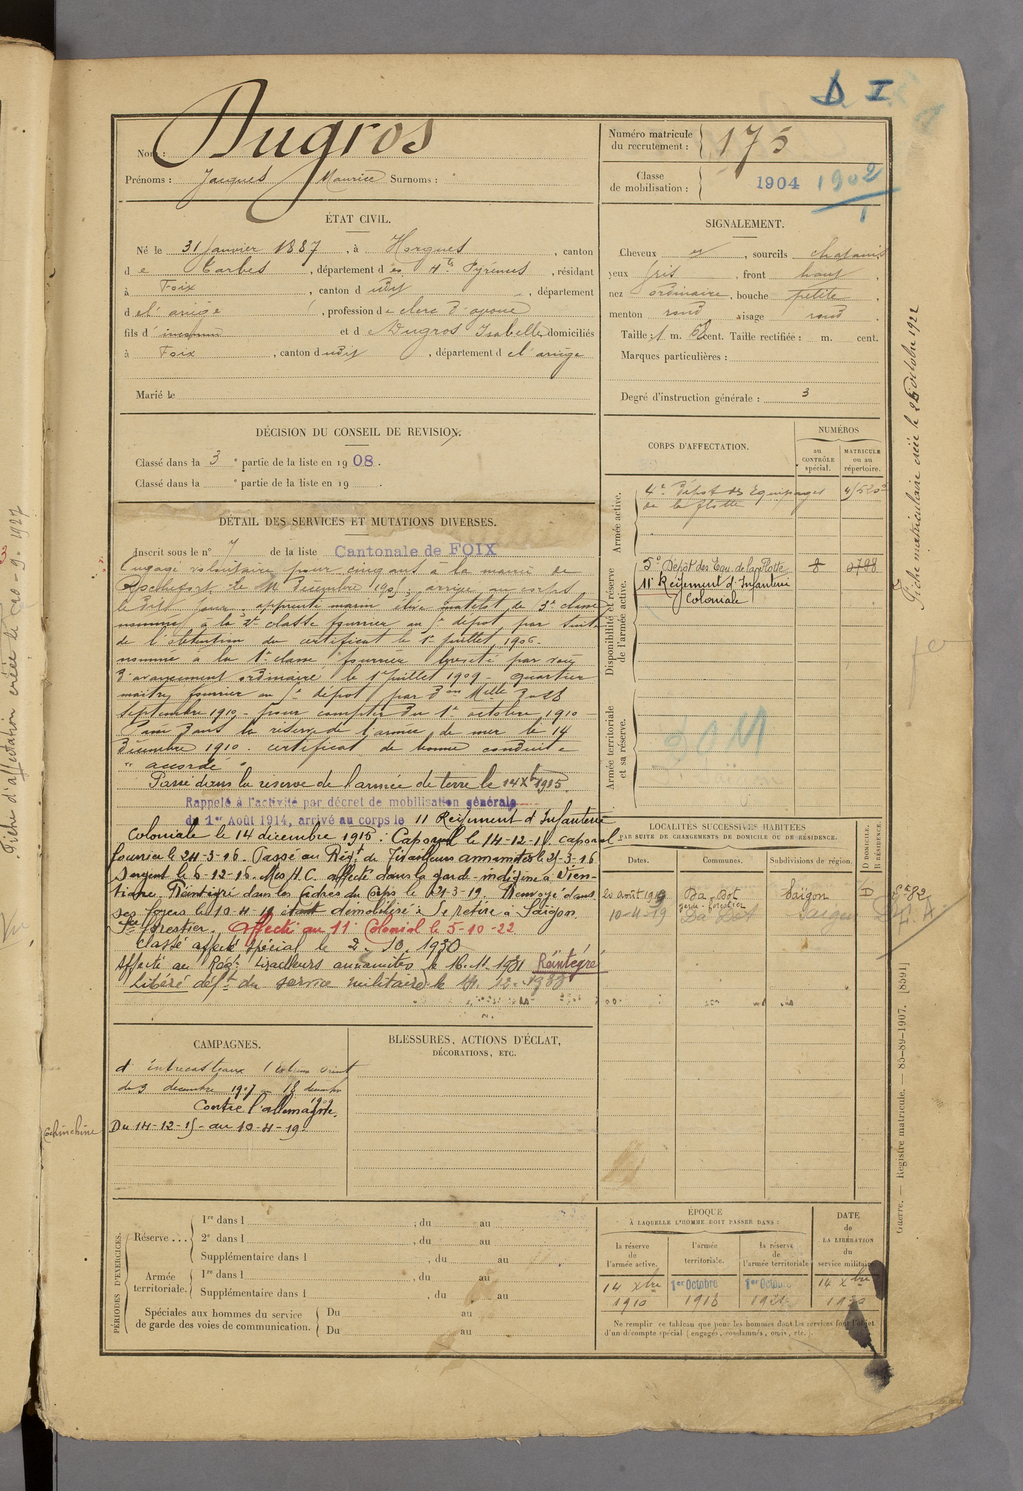 D I
Nom : Dugros
Prénoms : Jacques Maurice Surnoms : "
Numéro matricule
du recrutement : 175
Classe
de mobilisation : 1904 1902
ÉTAT CIVIL.
Né le 31 Janvier 1887, à Horgues, canton
de Tarbes, département des Htes Pyrénées, résidant
à Foix, canton dudit, département
de l'ariège, profession de clerc d'avoué
fils d'inconnu et de Dugros Isabelle domiciliés
à Foix, canton dudit, département de l'ariège
Marié le
SIGNALEMENT.
Cheveux et, sourcils chatains
yeux gris, front haut,
nez ordinaire, bouche petite,
menton rond visage rond.
Taille : 1 m. cent. Taille rectifiée : m. cent.
Marques particulières :
Degré d'instruction générale : 3
DÉCISION DU CONSEIL DE REVISION.
Classé dans la 3e partie de la liste en 1908.
Classé dans la e partie de la liste en 19 .
CORPS D'AFFECTATION.
NUMÉROS
au
CONTRÔLE
spécial.
MATRICULE
ou au
répertoire.
Armée active.
4e Dépot des Equipages
de la flotte
Disponibilité et réserve
de l'armée active.
5e Dépot des Equ. de la flotte
11e Régiment d'Infanterie
Coloniale
Armée territoriale
et sa réserve.
DÉTAIL DES SERVICES ET MUTATIONS DIVERSES.
Inscrit sous le n° 7 de la liste Cantonale de FOIX
Engagé volontaire pour cinq ans à la mairie de
Rochefort le Décembre arrivé au corps
le dit jour, apprenti marin élève matelot de 3e classe
nommé à la 2e classe fourrier au dépot par suite
de l'obtention du certificat le 1er juillet 1906.
nommé à la 1e classe fourrier breveté par voie
d'avancement ordinaire le 1er juillet 1909 - quartier
maitre fourrier au dépot par Don Melle
Septembre 1910 - pour compter du 1er octobre 1910
Passé dans la réserve de l'armée de mer le 14
Décembre 1910. certificat de bonne conduite
"accordé"
Passé dans la réserve de l'armée de terre le 14 Xbre 1915.
Rappelé à l'activité par décret de mobilisation générale
du 1er Août 1914, arrivé au corps le 11 Régiment d'Infanterie
Coloniale le 14 décembre 1915. Caporal le 14-12-15 caporal
fourrier le 24-3-16. Passé au Régt de Tirailleurs annamites le 31-3-16
Sergent le 6-12-16. Mis H.C. affecté dans la garde indigène à Vien-
tiane. Réintégré dans les cadres du Corps le 21-3-19. Renvoyé dans
ses foyers le 10-4-19 étant démobilisé : Se retire à Saïgon
Sce forestier. Affecté au 11 Colonial le 5-10-22
Classé affecté spécial le 2. 10. 1930
Affecté au Régt tirailleurs annamites le 16.11.1931 Réintégré
Libéré déft du service militaire le
LOCALITÉS SUCCESSIVES HABITÉES
PAR SUITE DE CHANGEMENTS DE DOMICILE OU DE RÉSIDENCE.
Dates.
Communes.
Subdivisions de région.
D DOMICILE.
R RÉSIDENCE.
20 août 1919 Ba Bot Saïgon D
10-4-19 Da Bet Saigon
CAMPAGNES.
d'Entrecasteaux
du 3 décembre 1907
Contre l'allemagne.
Du 14-12-15 - au 10-4-19.
Cochinchine
BLESSURES, ACTIONS D'ÉCLAT,
DÉCORATIONS, ETC.
PÉRIODES D'EXERCICES.
Réserve ...
1re dans l ; du au
2e dans l , du au
Supplémentaire dans l , du au
Armée
territoriale.
1re dans l , du au
Supplémentaire dans l , du au
Spéciales aux hommes du service
de garde des voies de communication.
Du au
Du au
ÉPOQUE
À LAQUELLE L'HOMME DOIT PASSER DANS :
la réserve
de l'armée active.
l'armée
territoriale.
la réserve
de l'armée territoriale
DATE
de
LA LIBÉRATION
du
service militaire
14 Xbre
1910
1er Octobre
1918
1er Octobre
14 Xbre
Ne remplir ce tableau que pour les hommes dont les services font l'objet
d'un décompte spécial (engagés, condamnés, omis, etc.)
Fiche matriculaire créée le 25 octobre 1922
Guerre. — Registre matricule. — 85-89-1907. [8591]
Fiche d'affectation créée le 20-9-1927